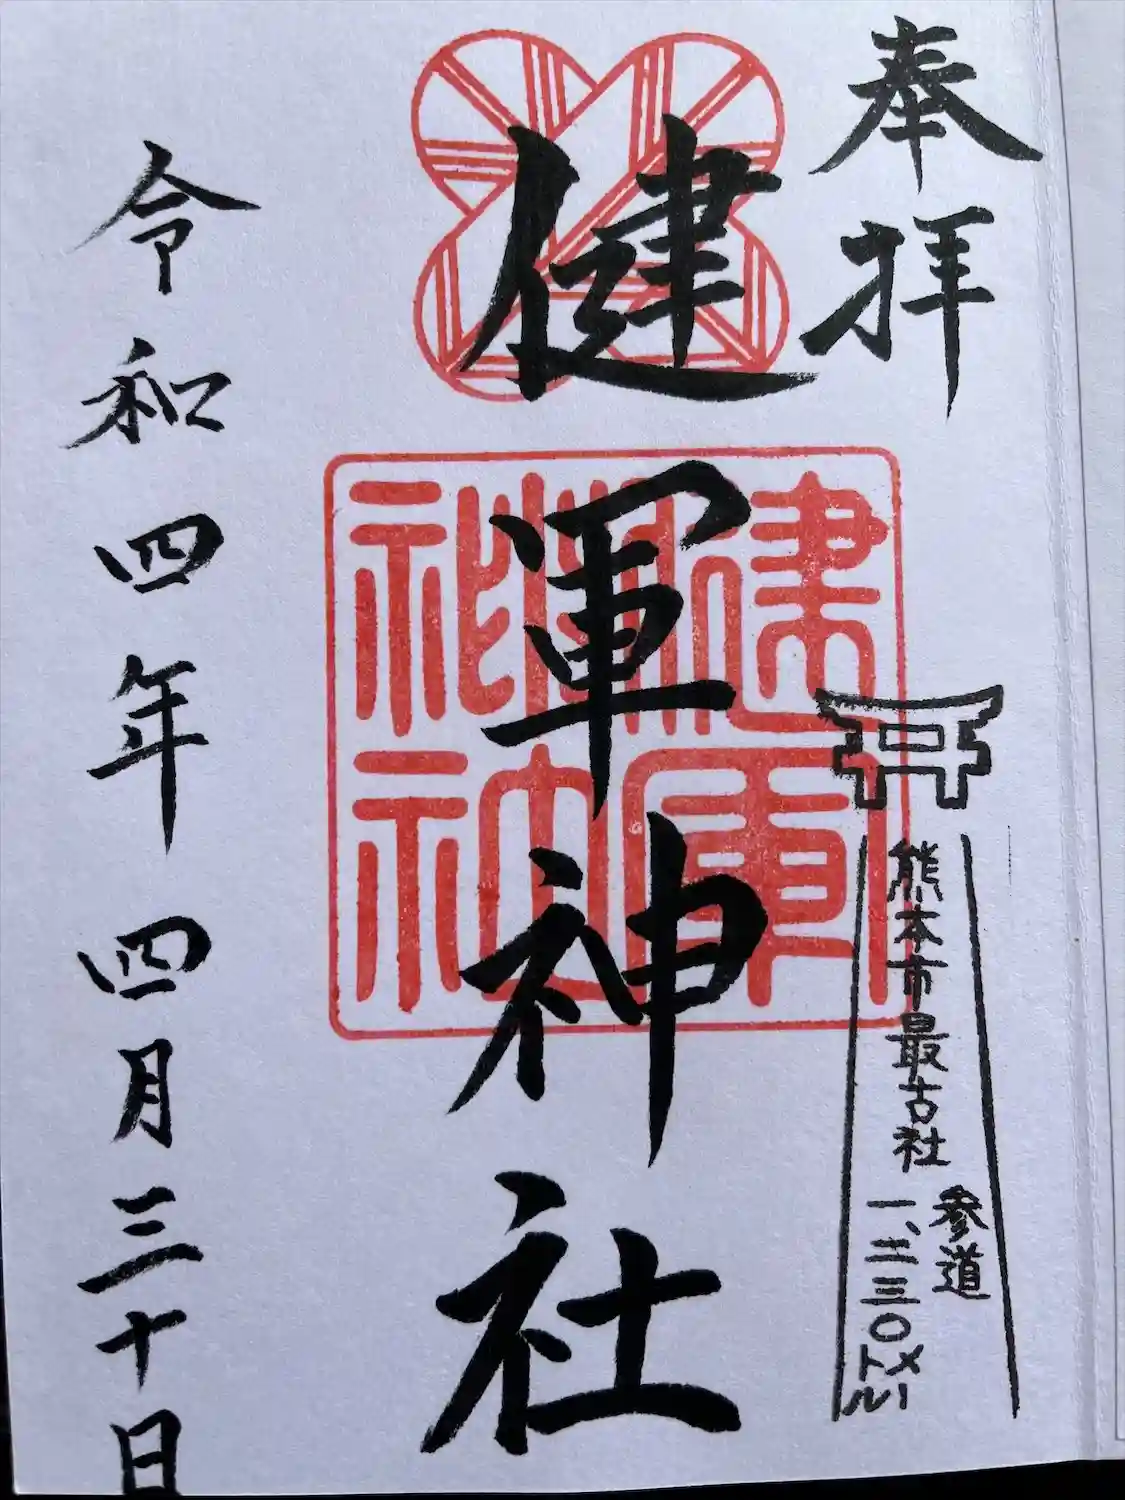 奉拝
熊本市最古社
参道
一、二三〇メートル
健軍神社
健軍
令和四年四月三十日